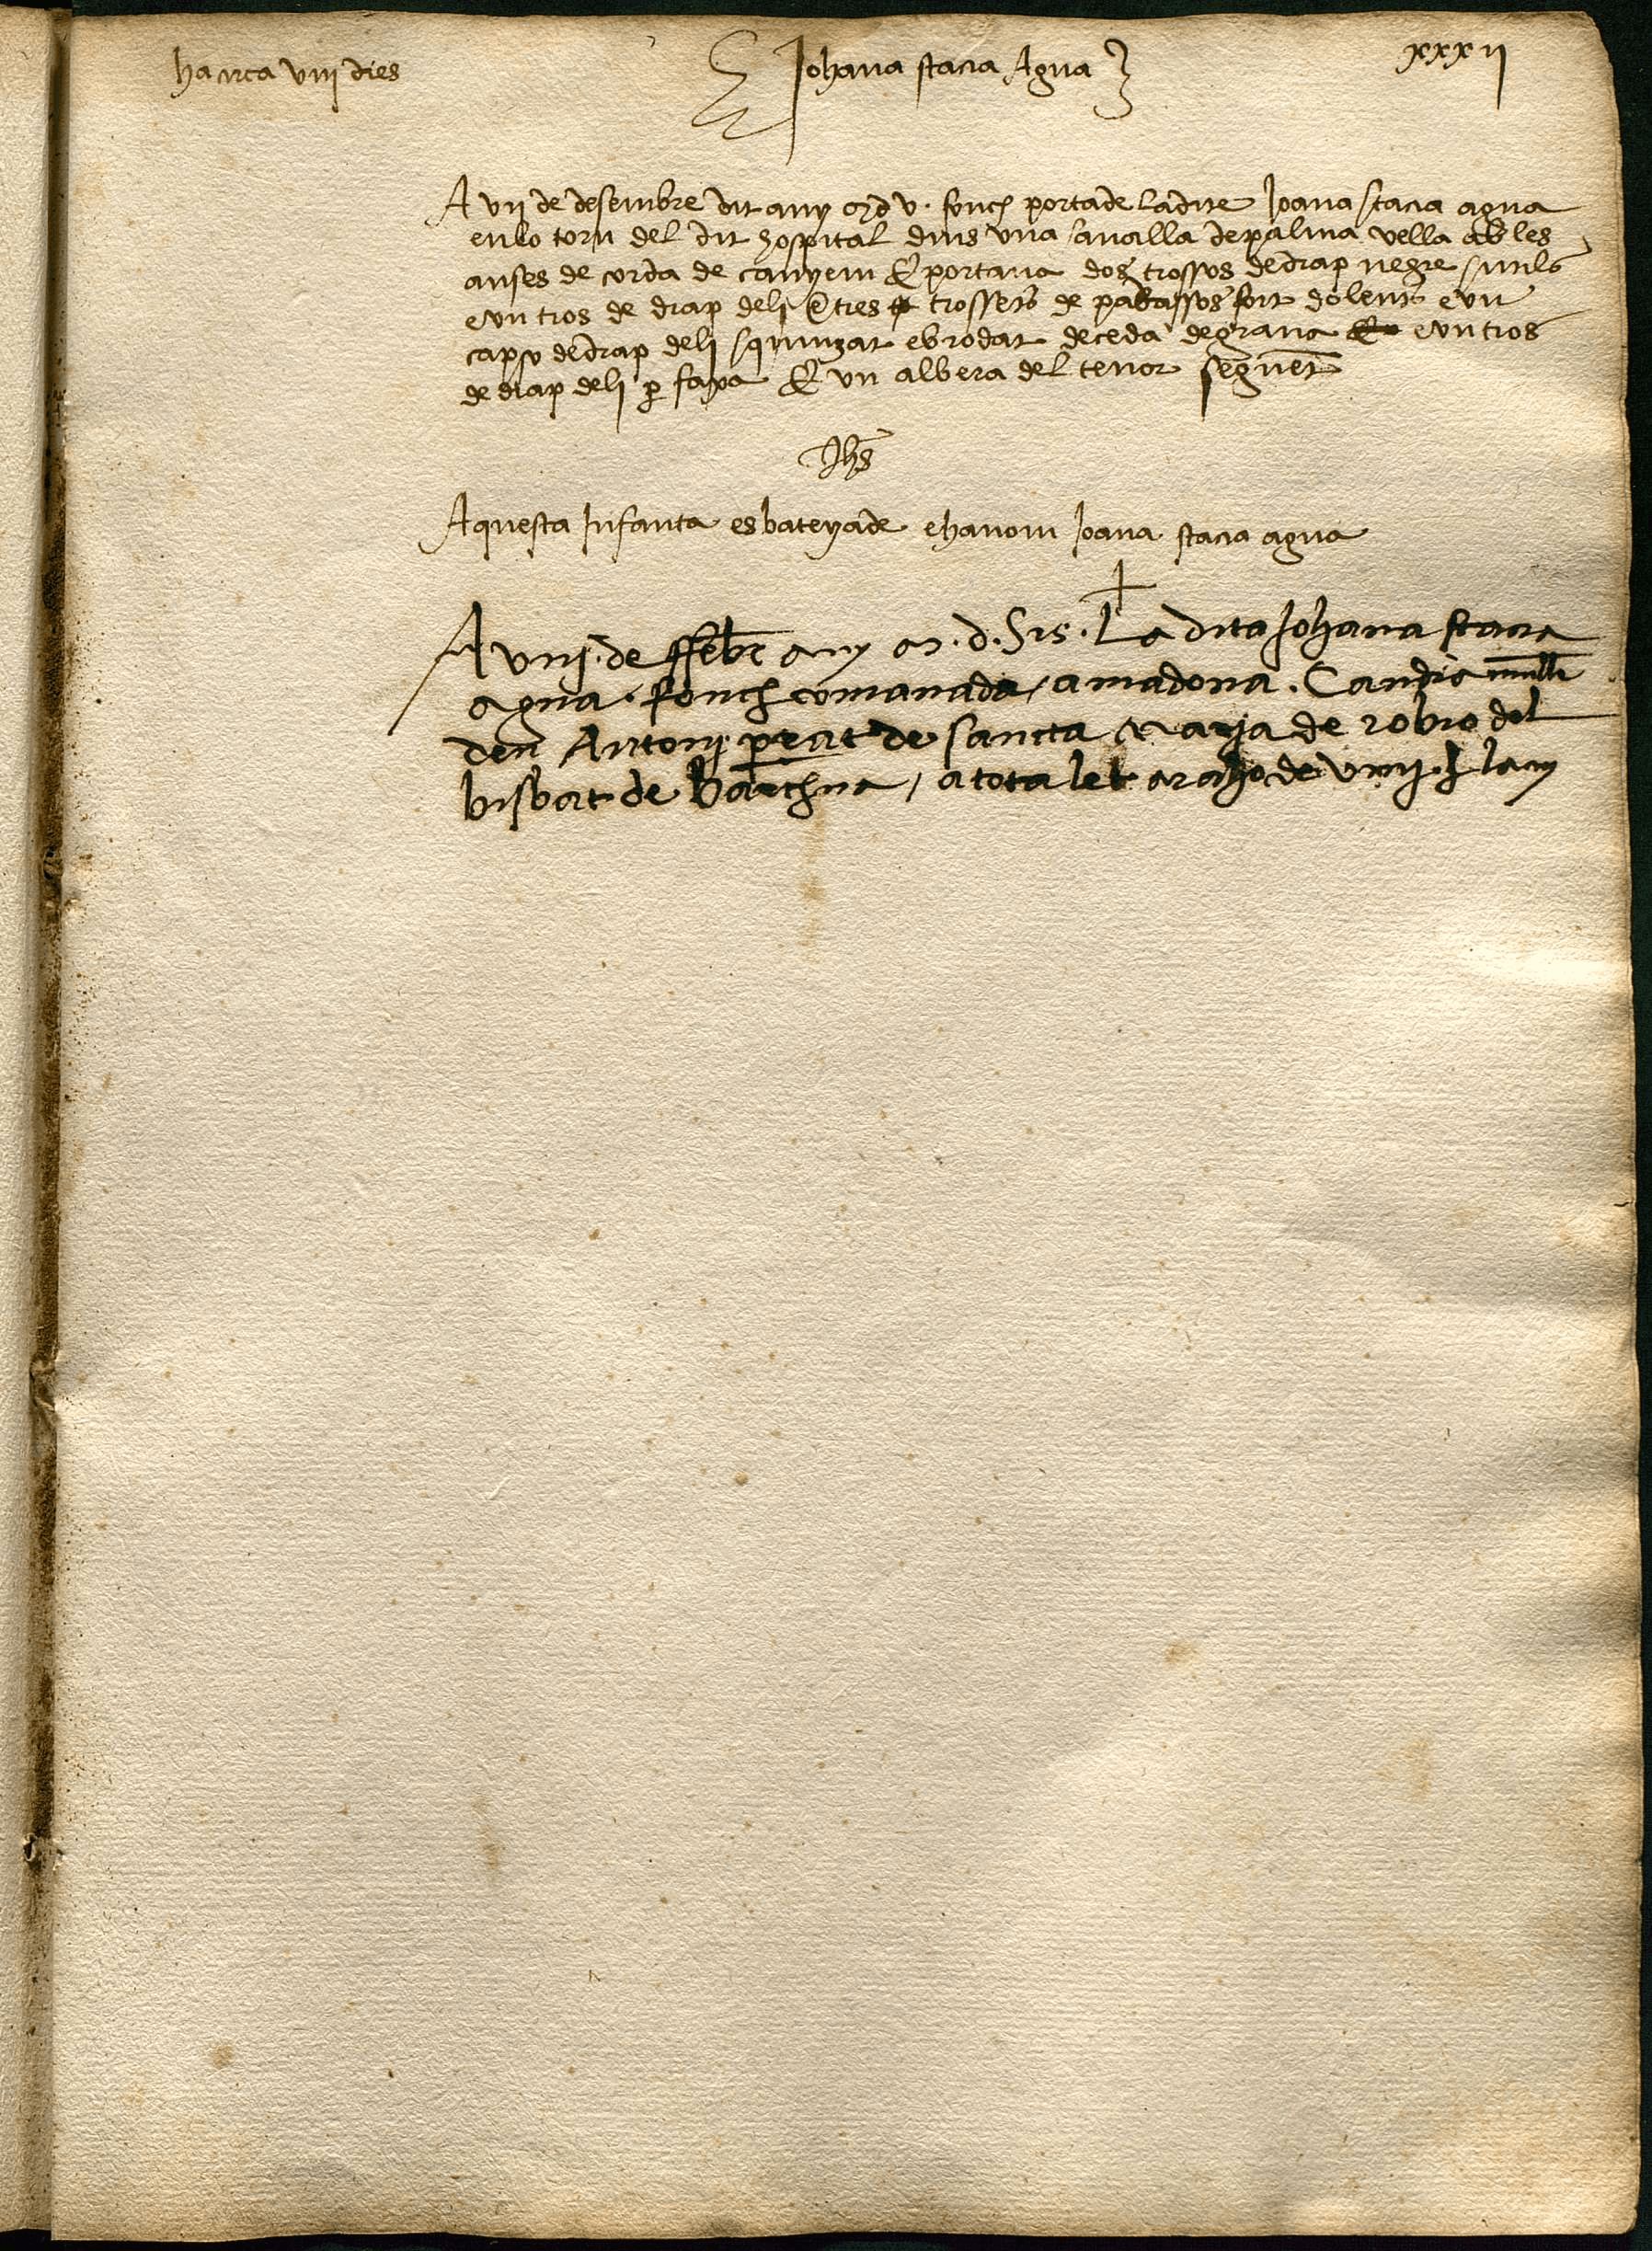 ha circa viii dies
Johana stacia Agna
xxxii
A vii de desembre dit any MD v. fonch portade ladite Joana stacia agna
en lo torn del dit hospital dins una savalla de palma vella ab les
anses de corda de canyem E portava dos trossos de drap negre
e un tros de drap de li E tres trossets de padassos fort dolents e un
capso de drap de li squinzat e brodat de ceda de grana e un tros
de drap de li p faxa E un albera del tenor seguent
Jhs
Aquesta Infanta es bateyade e ha nom Joana stacia agna
A viiij. de ffebr any M. d. Sis. La dita Johana stacia
agna. fonch comanada / a madona. Candia mull
den Antonj perat de sancta Maria de robio del
bisbat de barchna / a tota let a raho de viiij. l lany